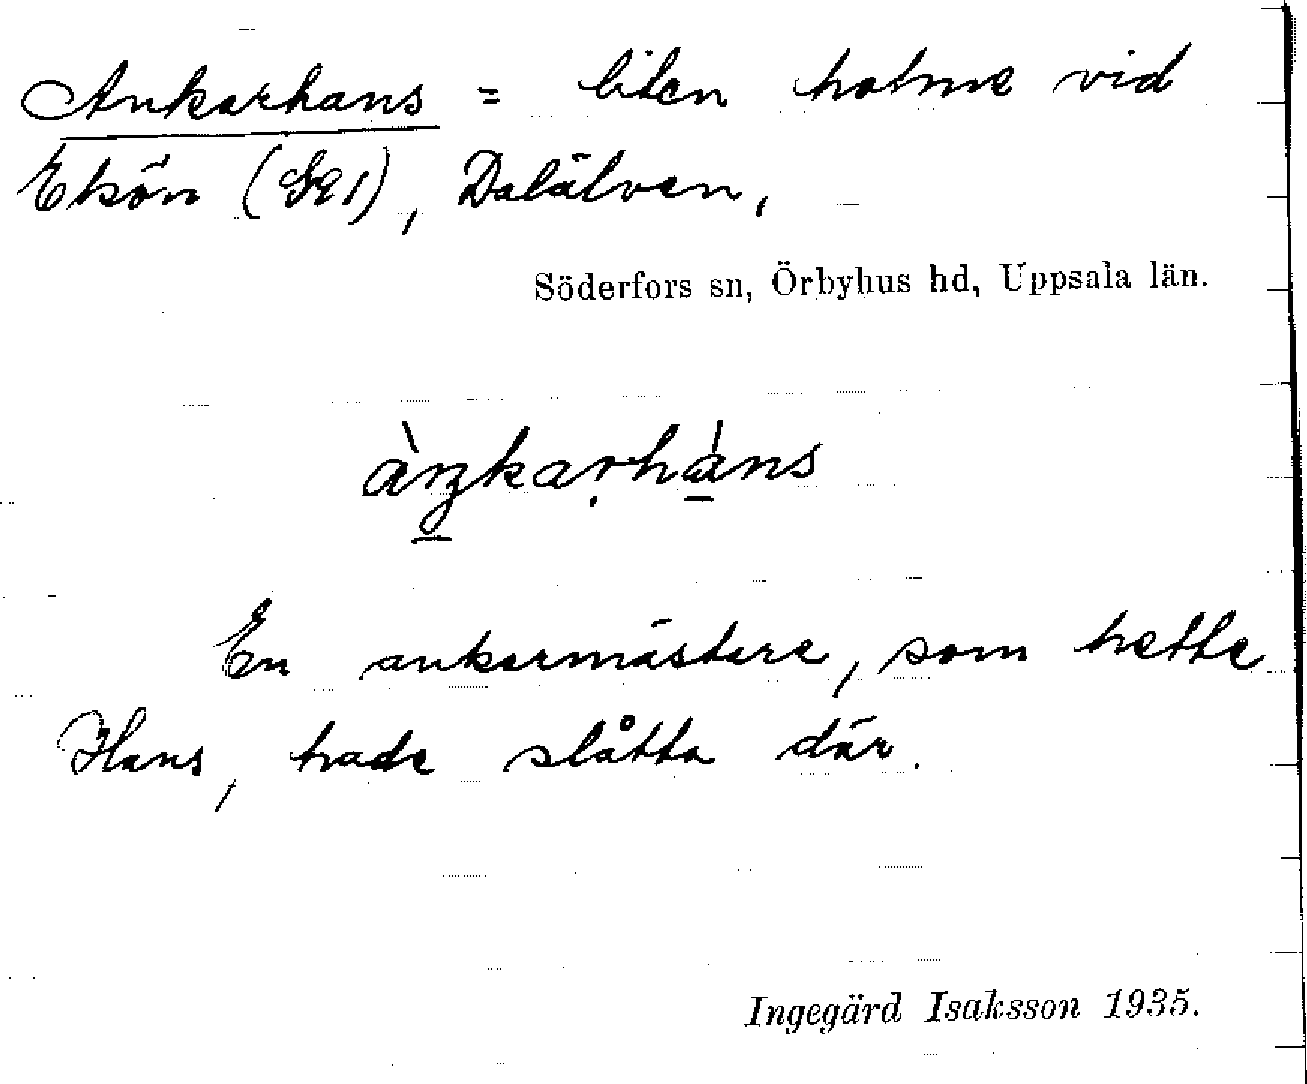 Ankarhans = liten holme vid
Ekön (GE1), Dalälven,
Söderfors sn, Örbyhus hd, Uppsala län.
En ankarmästare, som hette
Hans, hade slåtta där.
Ingegärd Isaksson 1935.